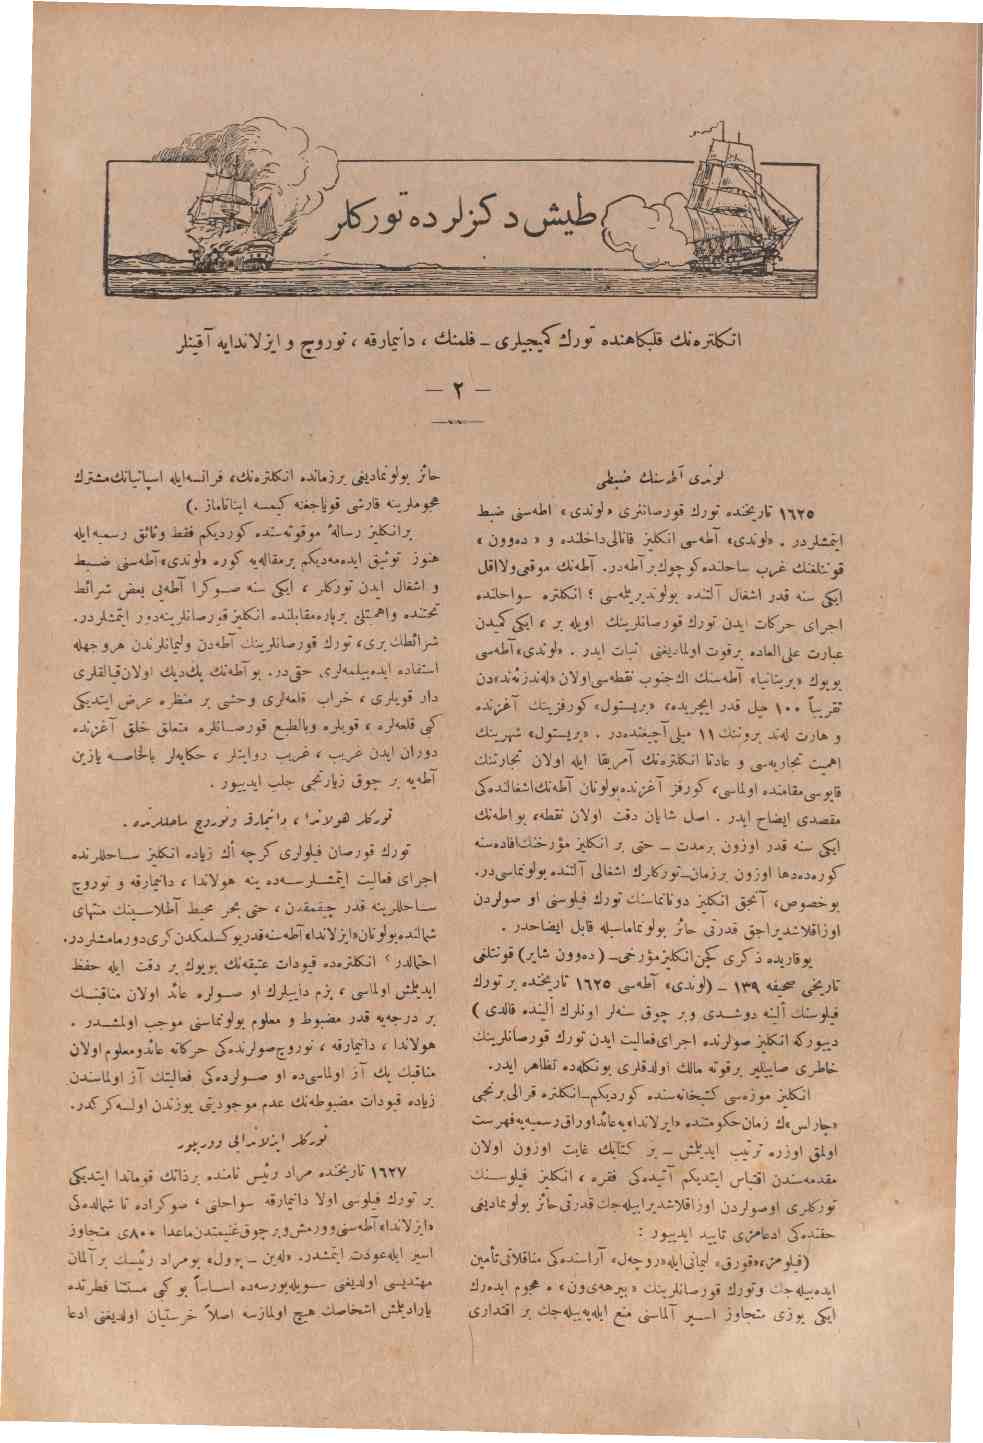 طیش دكزلرده توركلر
انكلتره‌نك قلبكاهنده تورك كمیجیلری ــ فلمنك ، دانیمارقه ، نوروچ و ایزلاندایه آقینلر
— ٢ —
لوندی آطه‌سنك ضبطی
١٦٢٥ تاریخنده تورك قورصانلری «لوندی» اطه‌سنی ضبط
ایتمشلردر . «لوندی» آطه‌سی انكلیز قانالی‌داخلنده و « ده‌وون »
قونتلغنك غرب ساحلنده‌كوچوك‌بر آطه‌در. آطه‌نك موقعی‌ولااقل
ایكی سنه قدر اشغال آلتنده بولوندیریلمه‌سی ؛ انكلتره سواحلنده
اجرای حركات ایدن تورك قورصانلرینك اویله بر ، ایكی كمیدن
عبارت علی‌العاده برقوت اولمادیغنی اثبات ایدر . «لوندی»آطه‌سی
بویوك «بریتانیا» آطه‌سنك اك‌جنوب نقطه‌سی‌اولان «له‌ندزئه‌ند»دن
تقریباً ١٠٠ میل قدر ایچریده، «بریستول» كورفزینك آغزنده
و هارت له‌ند بروننك ١١ میلی‌آچیغنده‌در . «بریستول» شهرینك
اهمیت تجاریه‌سی و عادتا انكلتره‌نك آمریقا ایله اولان تجارتنك
قاپوسی‌مقامنده اولماسی، كورفز آغزنده‌بولونان آطه‌نك‌اشغالنده‌كی
مقصدی ایضاح ایدر . اصل شایان دقت اولان نقطه، بو اطه‌نك
ایكی سنه قدر اوزون برمدت ــ حتی بر انكلیز مؤرخنك‌افاده‌سنه
كوره‌ده‌دها اوزون برزمان‌ــ‌توركلرك اشغالی آلتنده بولونماسی‌در.
بوخصوص، آنجق انكلیز دونانماسنك تورك فیلوسنی او صولردن
اوزاقلاشدیراجق قدرتی حائز بولونماماسیله قابل ایضاحدر .
یوقاریده ذكری كچن‌انكلیزمؤرخی‌ــ (ده‌وون شایر) قونتلغی
تاریخی صحیفه ١٣٩ ــ (لوندی» آطه‌سی ١٦٢٥ تاریخنده بر تورك
فیلوسنك ألینه دوشدی وبر چوق سنه‌لر اونلرك ألینده قالدی )
دییوركه انكلیز صولرنده اجرای‌فعالیت ایدن تورك قورصانلرینك
خاطری صاییلیر برقوته مالك اولدقلری بونكله‌ده تظاهر ایدر.
انكلیز موزه‌سی كتبخانه‌سنده كوردیكم‌ــ‌انكلتره قرالی‌برنجی
«چارلس»ك زمان‌حكومتنده «ایرلاندا»یه‌عائداوراق‌رسمیه‌یه‌فهرست
اولمق اوزره ترتیب ایدیلمش ــ بر كتابك غایت اوزون اولان
مقدمه‌سندن اقتباس ایتدیكم آتیده‌كی فقره ، انكلیز فیلوســنك
توركلری اوصولردن اوزاقلاشدیرابیله‌جك قدرتی‌حائز بولونمادیغی
حقنده‌كی ادعامزی تایید ایدییور :
(فیلومز،«قورق» لیمانی‌ایله«روچه‌ل» آراسنده‌كی مناقلاتی‌تأمین
ایده‌بیله‌جك وتورك قورصانلرینك « بیرهه‌ی‌ون» ه هجوم ایده‌رك
ایكی یوزی متجاوز اســیر آلماسنی منع ایله‌یه‌بیله‌جك بر اقتداری
حائز بولونمادیغی برزمانده انكلتره‌نك، فرانسه‌ایله اسپانیانك‌مشترك
هجوملرینه قارشی قویاجغنه كیمسه اینانماز .)
برانكلیز رسالهٔ موقوته‌سنده كوردیكم فقط وثائق رسمیه‌ایله
هنوز توثیق ایده‌مه‌دیكم برمقاله‌یه كوره «لوندی»آطه‌سنی ضبط
و اشغال ایدن توركلر ، ایكی سنه صوكرا آطه‌یی بعض شرائط
تحتنده واهمیتلی برپاره‌مقابلنده انكلیز قورصانلرینه‌دور ایتمشلردر.
شرائطك بری، تورك قورصانلرینك آطه‌دن ولیمانلرندن هروجهله
استفاده ایده‌بیلمه‌لری حتی‌در. بو آطه‌نك یك‌دیك اولان‌قیالقلری
دار قویلری ، خراب قلعه‌لری وحشی بر منظره عرض ایتدیكی
كبی قلعه‌لره ، قویلره وبالطبع قورصانلره متعلق خلق آغزنده
دوران ایدن غریب ، غریب روایتلر ، حكایه‌لر بالخاصه یازین
آطه‌یه بر چوق زیارتجی جلب ایدییور .
توركلر هولاندا ، دانیمارقه ونوروچ ساحللرنده .
تورك قورصان فیلولری كرچه أك زیاده انكلیز ساحللرنده
اجرای فعالیت ایتمشلرسه‌ده ینه هولاندا ، دانیمارقه و نوروچ
ساحللرینه قدر چیقمقدن ، حتی بحر محیط آطلاسینك منتهای
شمالنده‌بولونان«ایزلاندا»آطه‌سنه‌قدریوكسلمكدن‌كری‌دورمامشلردر.
احتمالدر؛ انكلتره‌ده قیودات عتیقه‌نك بویوك بر دقت ایله حفظ
ایدیلمش اولماسی ، بزم دایبلرك او صولره عائد اولان مناقبنك
بر درجه‌یه قدر مضبوط و معلوم بولونماسنی موجب اولمشدر .
هولاندا ، دانیمارقه ، نوروچ‌صولرنده‌كی حركاته عائدومعلوم اولان
مناقبك پك آز اولماسی‌ده او صولرده‌كی فعالیتك آز اولماسندن
زیاده قیودات مضبوطه‌نك عدم موجودیتی یوزندن اولسه‌كركدر.
توركلر ایزلاندایی ووریيور
١٦٢٧ تاریخنده مراد رئیس نامنده برذاتك قوماندا ایتدیكی
بر تورك فیلوسی اولا دانیمارقه سواحلنی ، صوكراده تا شمالده‌كی
«ایزلاندا» آطه‌سنی‌وورمش‌وبرچوق‌غنیمتدن‌ماعدا ٨٠٠ی متجاوز
اسیر ایله‌عودت ایتمشدر. «له‌ین ــ پوول» بومراد رئیسك برآلمان
مهتدیسی اولدیغنی سویله‌یورسه‌ده اساساً بو كبی مستثنا فطرتده
یارادیلمش اشخاصك هیچ اولمازسه اصلاً خرستیان اولدیغنی ادعا